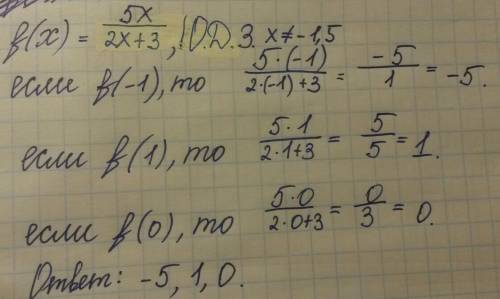 f(x) = 5x/(2x+3), ! О.Д.З. x≠-1,5
если f(-1), то 5·(-1)/(2·(-1)+3) = -5/1 = -5.
если f(1), то 5·1/(2·1+3) = 5/5 = 1.
если f(0), то 5·0/(2·0+3) = 0/3 = 0.
Ответ: -5, 1, 0.